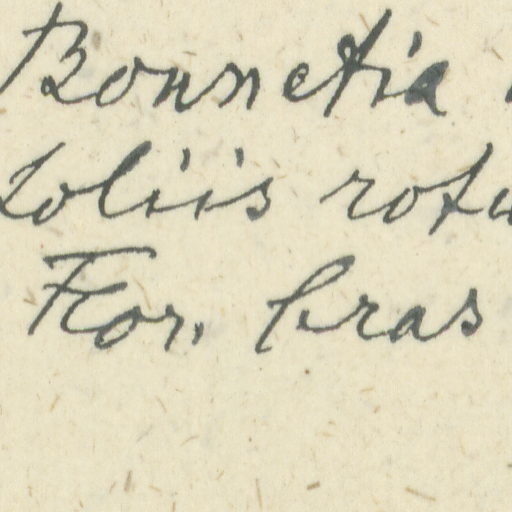 Bonnetia
foliis rotu
Flor. bras